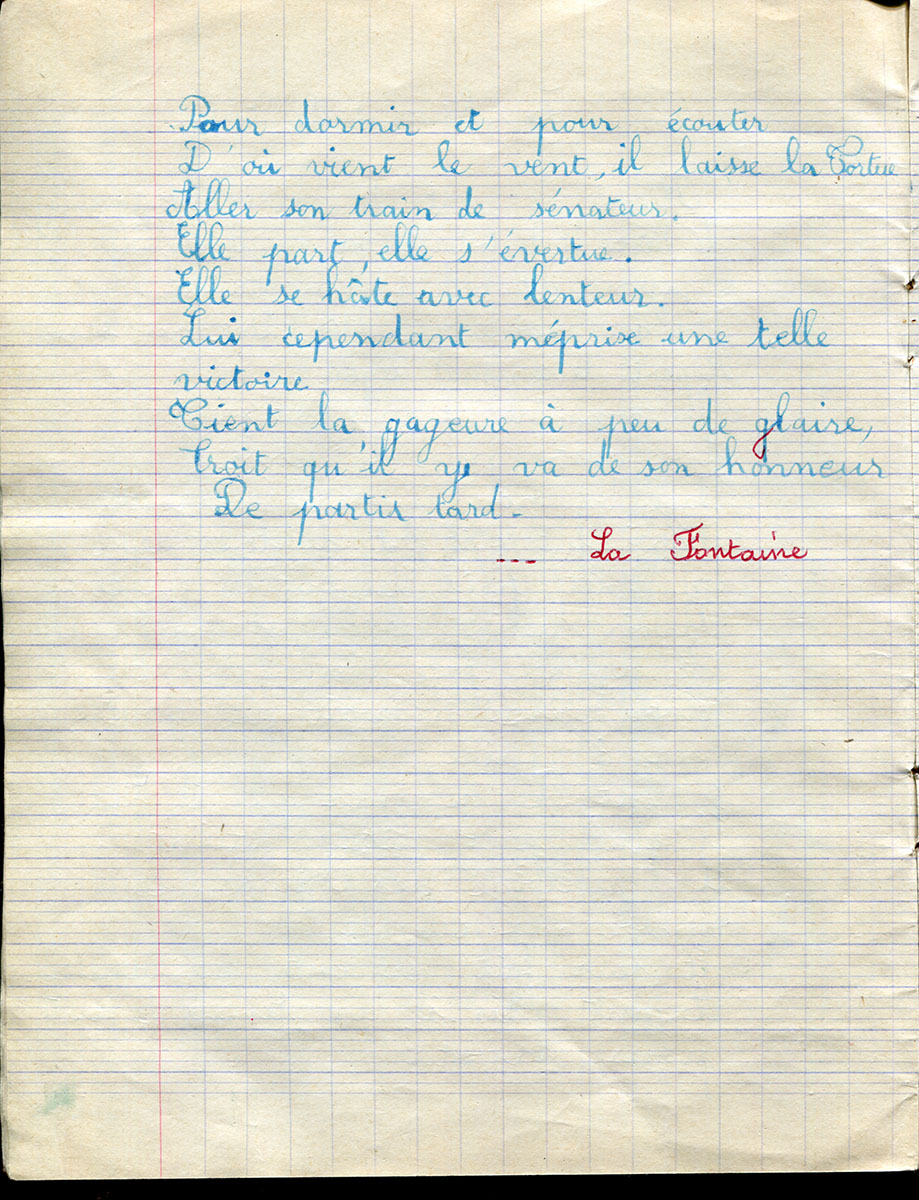 Pour dormir et pour écouter
D'où vient le vent, il laisse la Tortue
Aller son train de sénateur.
Elle part, elle s'évertue.
Elle se hâte avec lenteur.
Lui cependant méprise une telle
victoire
Tient la gageure à peu de glaire,
Croit qu'il y va de son honneur
De partir tard -
--- La Fontaine